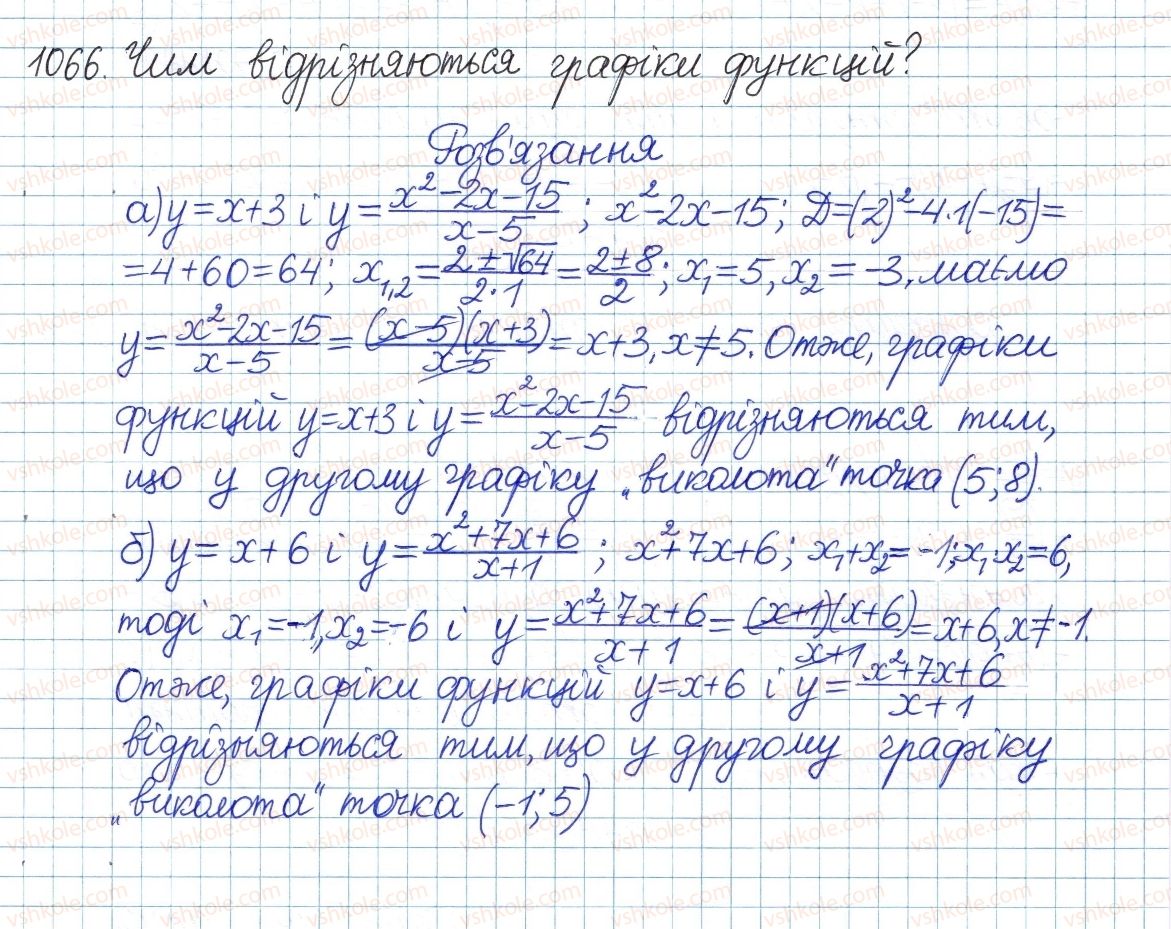 1066. Чим відрізняються графіки функцій?
Розв'язання
а) y=x+3 і y=\frac{x^2-2x-15}{x-5}; x^2-2x-15; Д=(-2)^2-4·1(-15)=
=4+60=64; x_{1,2}=\frac{2±√64}{2·1}=\frac{2±8}{2}; x_1=5, x_2=-3, маємо
y=\frac{x^2-2x-15}{x-5}=\frac{(x-5)(x+3)}{x-5}=x+3, x≠5. Отже, графіки
функцій y=x+3 і y=\frac{x^2-2x-15}{x-5} відрізняються тим,
що у другому графіку „виколота“ точка (5;8).
б) y=x+6 і y=\frac{x^2+7x+6}{x+1}; x^2+7x+6; x_1+x_2=-1; x_1·x_2=6,
тоді x_1=-1, x_2=-6 і y=\frac{x^2+7x+6}{x+1}=\frac{(x+1)(x+6)}{x+1}=x+6, x≠-1.
Отже, графіки функцій y=x+6 і y=\frac{x^2+7x+6}{x+1}
відрізняються тим, що у другому графіку
„виколота“ точка (-1;5)